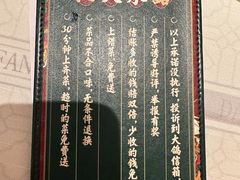 以上承诺没执行，投诉到大鸽信箱
严禁诱导好评，举报有奖
结账多收的钱赔双倍，少收的钱免
上错菜，免费送
菜品不合口味，无条件退换
30分钟上齐菜，超时的菜免费送